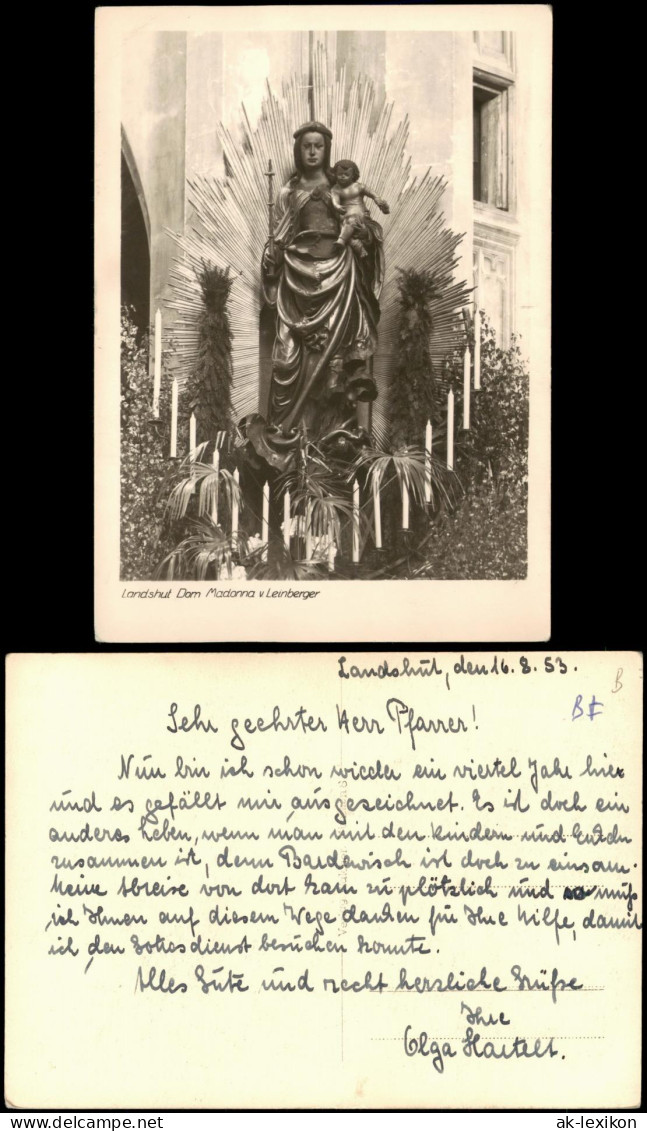 Landshut Dom Madonna v. Leinberger
Landshut, den 16. 8. 53.
B
Sehr geehrter Herr Pfarrer!
Nun bin ich schon wieder ein viertel Jahr hier
und es gefällt mir ausgezeichnet. Es ist doch ein
anderes Leben, wenn man mit den Kindern und Enkeln
zusammen ist, denn Bardewisch ist doch zu einsam.
Meine Abreise von dort kam zu plötzlich und muß
ich Ihnen auf diesem Wege danken für Ihre Hilfe, damit
ich den Gottesdienst besuchen konnte.
Alles Gute und recht herzliche Grüße
Ihre
Olga Hartelt.
www.delcampe.net
ak-lexikon